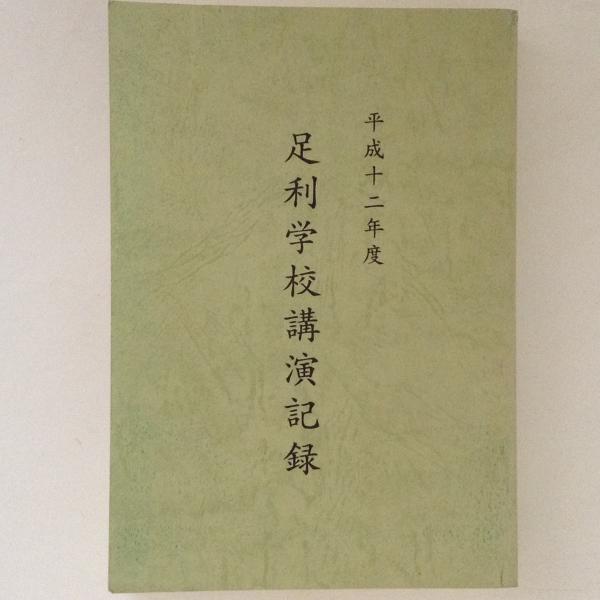 平成十二年度
足利学校講演記録